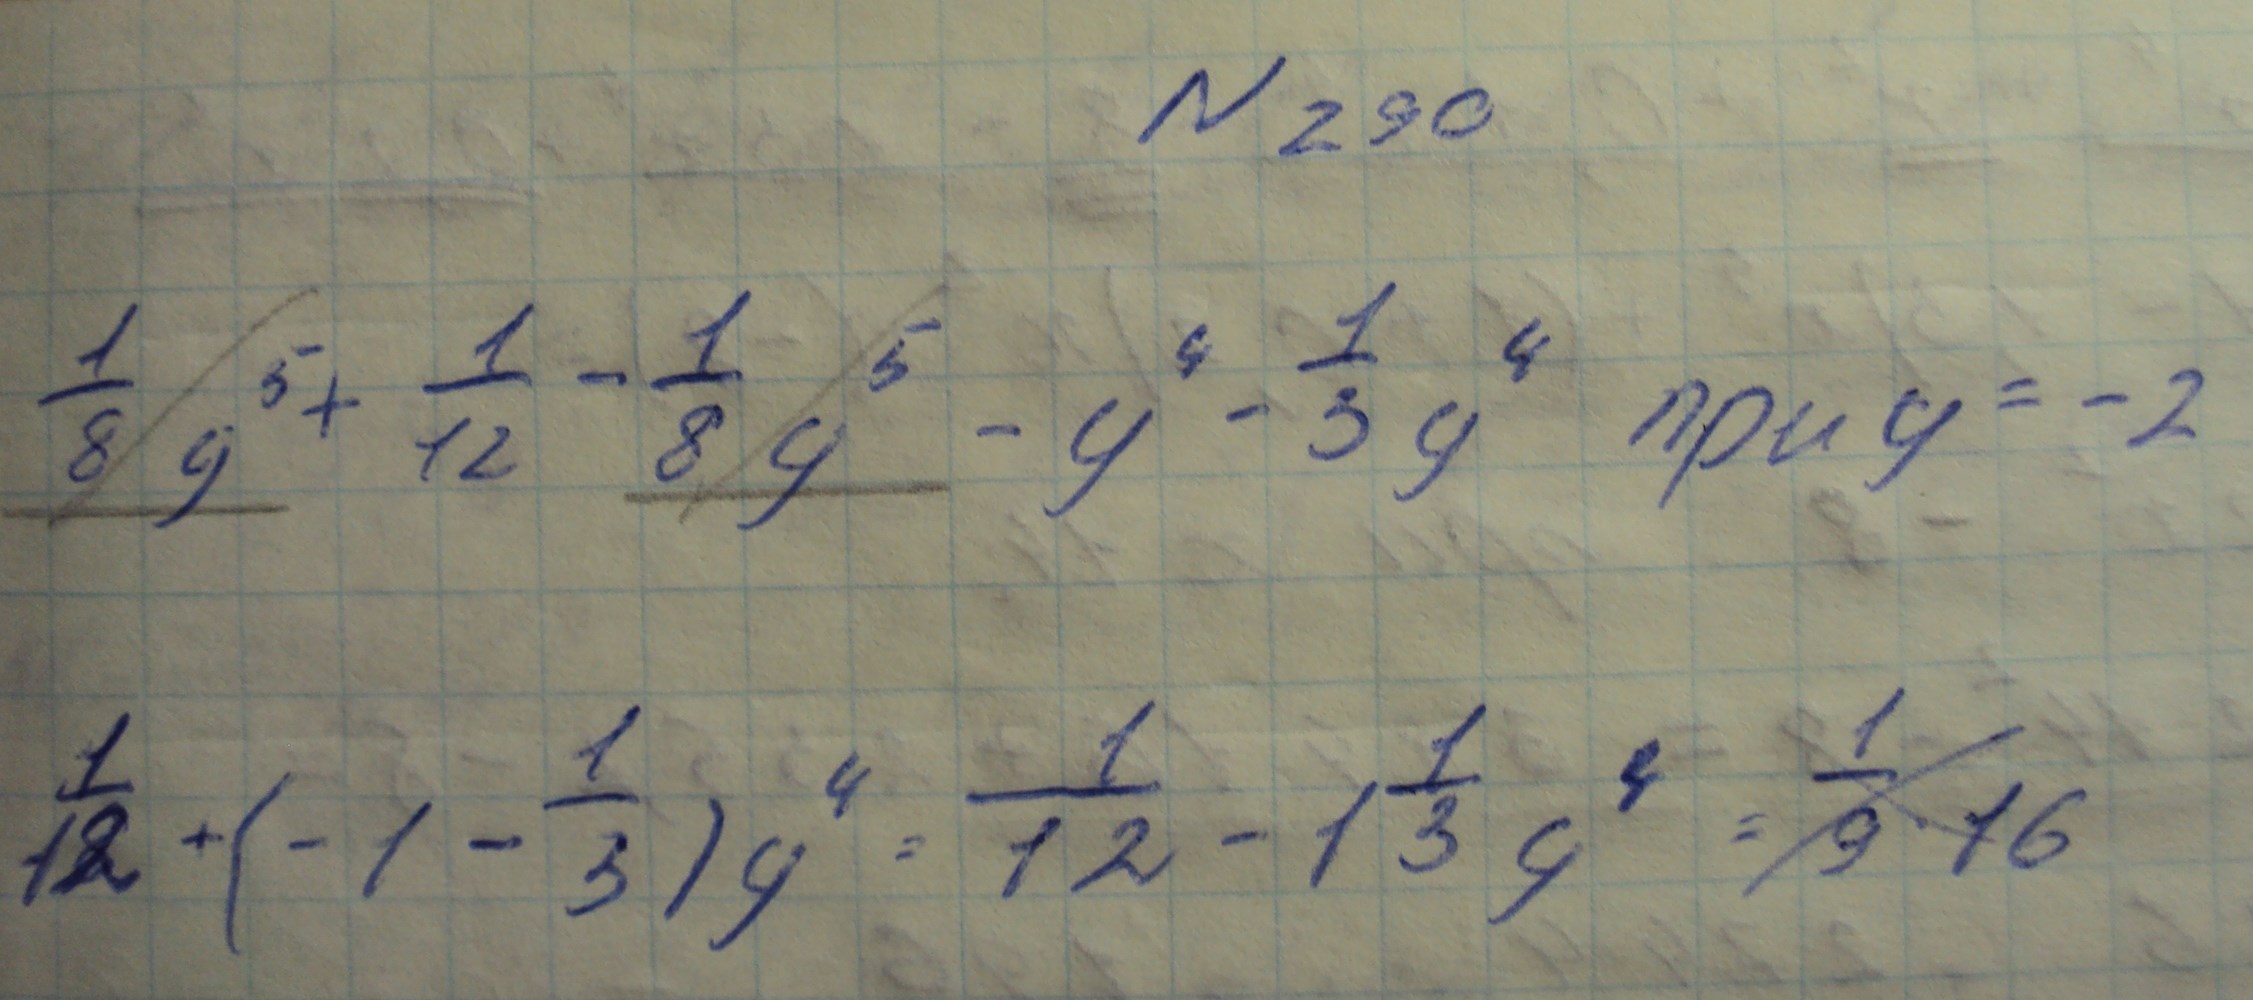 N 290
1/8 y⁵ + 1/12 - 1/8 y⁵ - y⁴ - 1/3 y⁴ при y = -2
1/12 + (-1 - 1/3) y⁴ = 1/12 - 1 1/3 y⁴ = 1/9 · 16